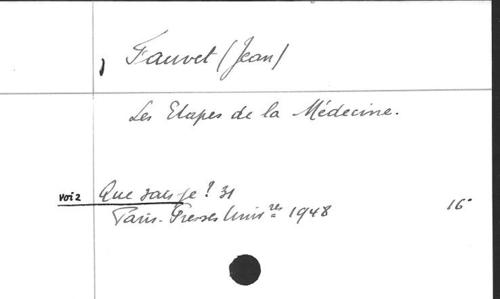 Fauvet (Jean)
Les Etapes de la Médecine.
voir Que sais je? 31
Paris. Presses Univ res 1948 16°